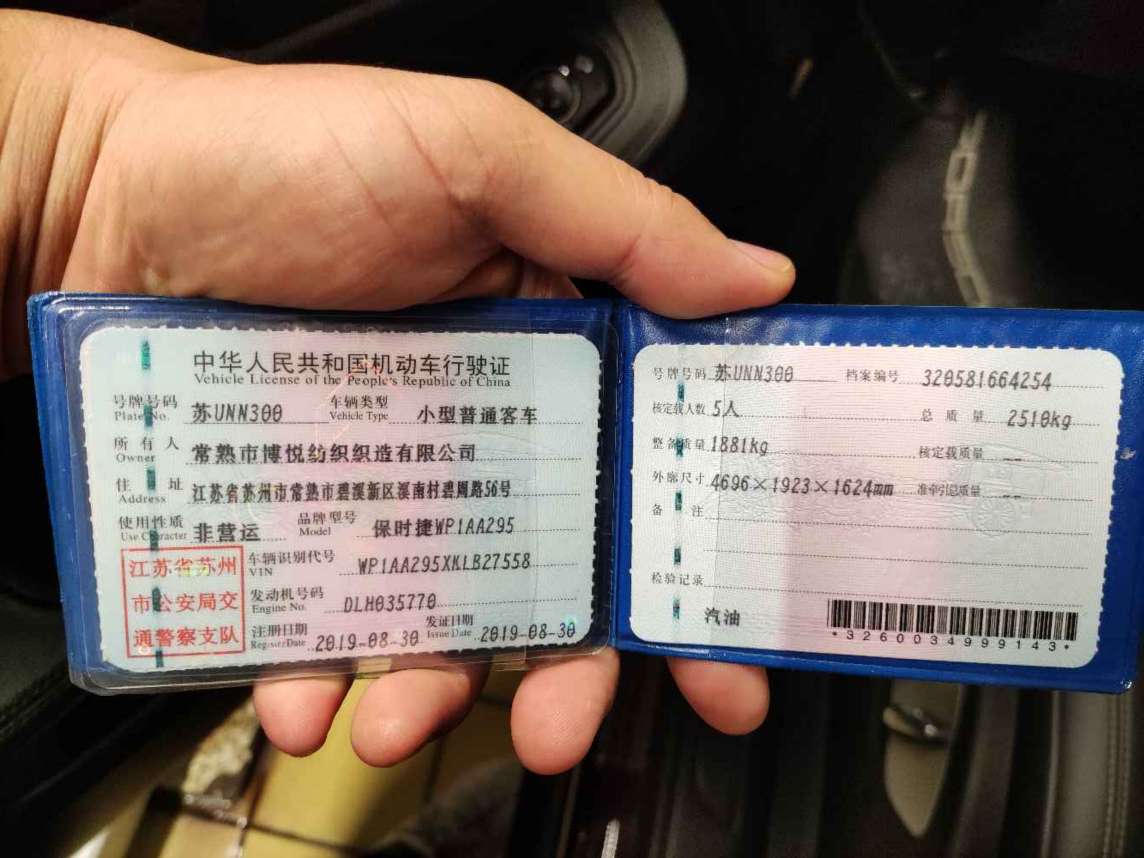 中华人民共和国机动车行驶证
Vehicle License of the People's Republic of China
号牌号码 苏UNN300 车辆类型 小型普通客车
Plate No. Vehicle Type
所有人 常熟市博悦纺织织造有限公司
Owner
住址 江苏省苏州市常熟市碧溪新区溪南村碧周路56号
Address
使用性质 非营运 品牌型号 保时捷WP1AA295
Use Character Model
江苏省苏州
市公安局交
通警察支队
车辆识别代号 WP1AA295XKLB27558
VIN
发动机号码 DLH035770
Engine No.
注册日期 2019-08-30 发证日期 2019-08-30
Register Date Issue Date
号牌号码 苏UNN300 档案编号 320581664254
核定载人数 5人 总质量 2510kg
整备质量 1881kg 核定载质量 --
外廓尺寸 4696×1923×1624mm 准牵引总质量 --
备注
检验记录
汽油
*3260034999143*